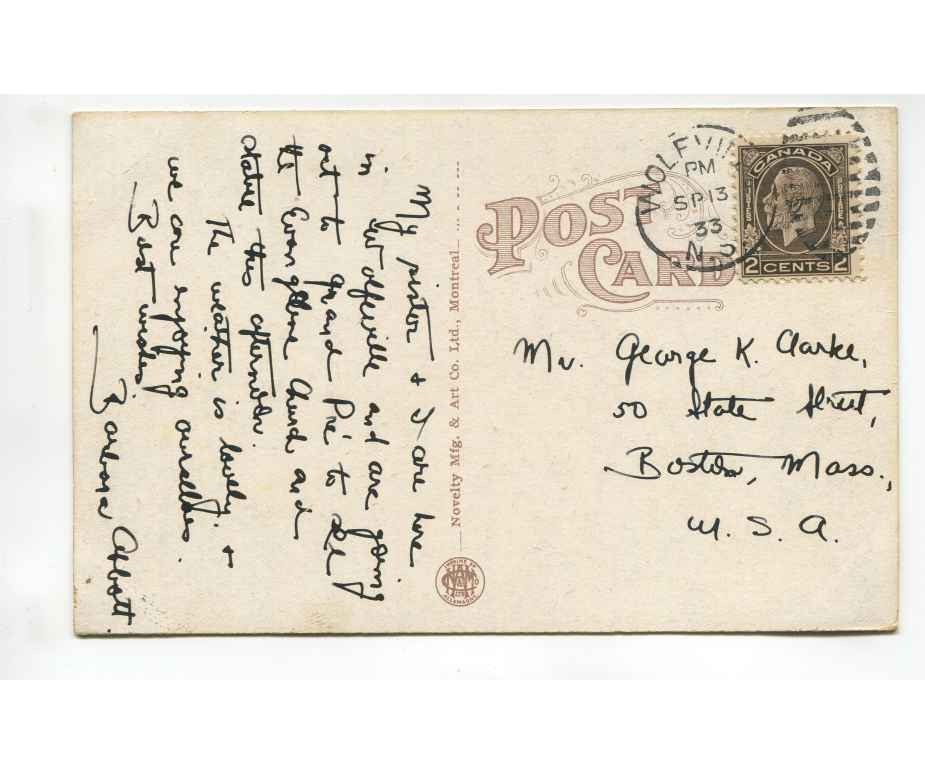 My sister & I are here
in Wolfville and are going
out to Grand Pré to see
the Evangeline Church and
statue this afternoon.
The weather is lovely &
we are enjoying ourselves.
Best wishes
Barbara Abbott.
Novelty Mfg. & Art Co. Ltd., Montreal
POST CARD
WOLFVILLE
PM
SP 13
33
N.S.
CANADA
2 CENTS 2
Mr. George K. Clarke,
50 State Street,
Boston, Mass.,
U. S. A.